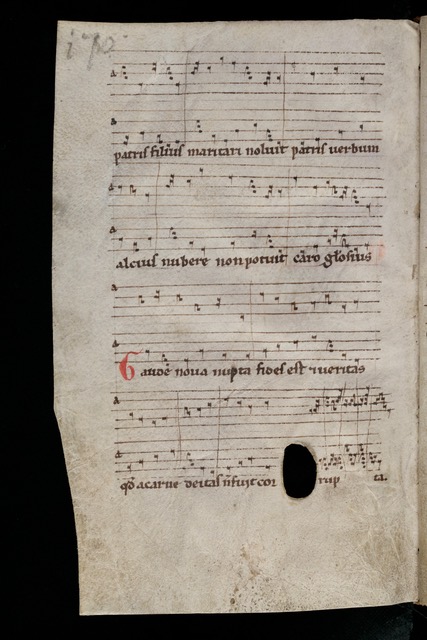 patris filius maritari noluit patris verbum
alcius nubere non potuit caro gloſius
Gaude nova nupta fides est & veritas
qd a carne deitas n fuit cor rup ta.